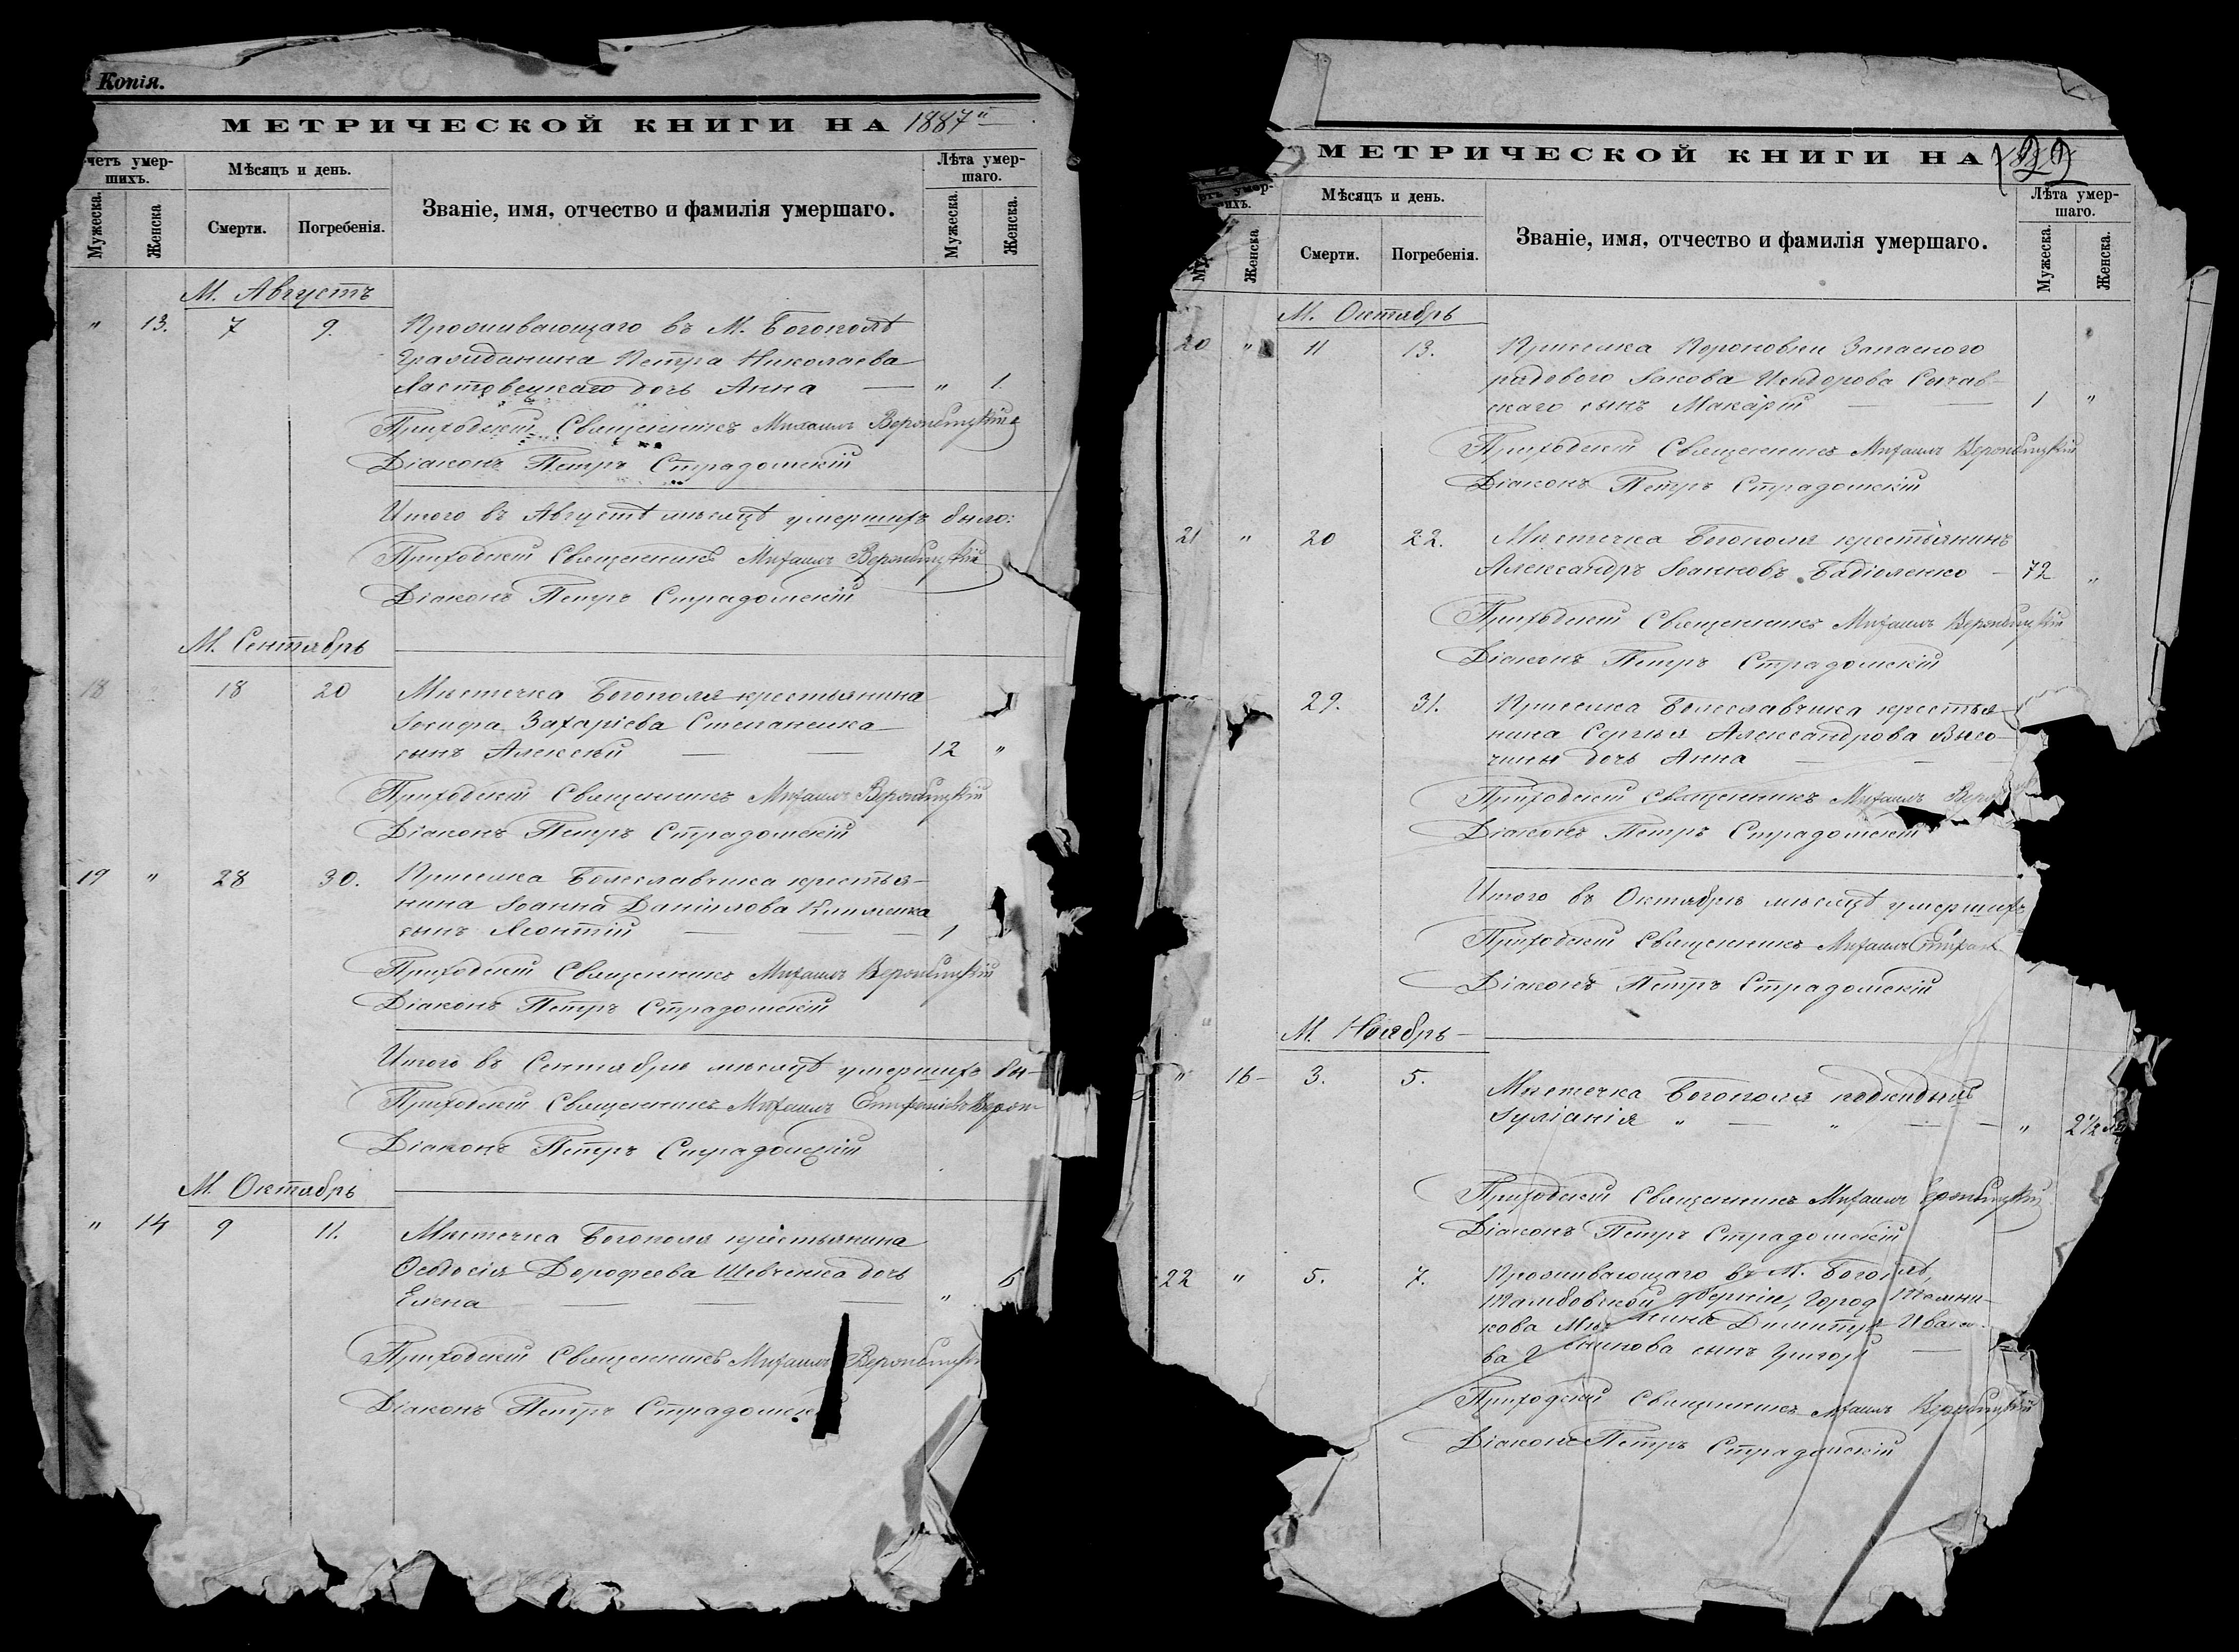 Копія.
МЕТРИЧЕСКОЙ КНИГИ НА 1887
четъ умер-
шихъ.
Мѣсяцъ и день.
Званіе, имя, отчество и фамилія умершаго.
Лѣта умер-
шаго.
Мужеска.
Женска
Смерти.
Погребенія.
Мужеска.
Женска.
М. Августъ
" 13. 7 9. Проживающаго въ М. Богополѣ
гражданина Петра Николаева
дочь Анна — " 1.
Приходскій Священникъ Михаилъ Вербицкій
Діаконъ Петръ Страдомскій
Итого въ Августѣ мѣсяцѣ умершихъ было:
Приходскій Священникъ Михаилъ Вербицкій
Діаконъ Петръ Страдомскій
М. Сентябрь
18 18 20 Мѣстечка Богополя крестьянина
Іосифа Захаріева Степаненка
сынъ Алексѣй — — 12 "
Приходскій Священникъ Михаилъ Вербицкій
Діаконъ Петръ Страдомскій
19 " 28 30. Приселка Болеславчика крестья-
нина Іоанна Даніилова
сынъ Леонтій — — — 1 "
Приходскій Священникъ Михаилъ Вербицкій
Діаконъ Петръ Страдомскій
Итого въ Сентябрѣ мѣсяцѣ умершихъ бы-
Приходскій Священникъ Михаилъ
Діаконъ Петръ Страдомскій
М. Октябрь
" 14 9 11. Мѣстечка Богополя крестьянина
Ѳеодосія Дорофеева Шевченка дочь
Елена — — — " 6
Приходскій Священникъ Михаилъ
Діаконъ Петръ
МЕТРИЧЕСКОЙ КНИГИ НА
22
умер-
ихъ.
Мѣсяцъ и день.
Званіе, имя, отчество и фамилія умершаго.
Лѣта умер-
шаго.
Женска
Смерти.
Погребенія.
Мужеска.
Женска.
М. Октябрь
20 " 11 13. Приселка Запаснаго
рядового Іакова Исидорова
скаго сынъ Макарій — — 1 "
Приходскій Священникъ Михаилъ Вербицкій
Діаконъ Петръ Страдомскій
21 " 20 22. Мѣстечка Богополя крестьянинъ
Александръ Іоанновъ — 72 "
Приходскій Священникъ Михаилъ Вербицкій
Діаконъ Петръ Страдомскій
29. 31. Приселка Болеславчика крестья-
нина Сергѣя Александрова Высо-
чины дочь Анна — —
Приходскій Священникъ Михаилъ
Діаконъ Петръ Страдомскій
Итого въ Октябрѣ мѣсяцѣ умершихъ
Приходскій Священникъ Михаилъ
Діаконъ Петръ Страдомскій
М. Ноябрь
" 16 3. 5. Мѣстечка Богополя подкидышъ
Іуліанія " — " — — " 2½
Приходскій Священникъ Михаилъ
Діаконъ Петръ Страдомскій
22 " 5. 7. Проживающаго въ М.
Тамбовской Город Темни-
кова Димитрія Ивано-
ва сынъ Григорій —
Приходскій Священникъ Вербицкій
Діаконъ Петръ Страдомскій